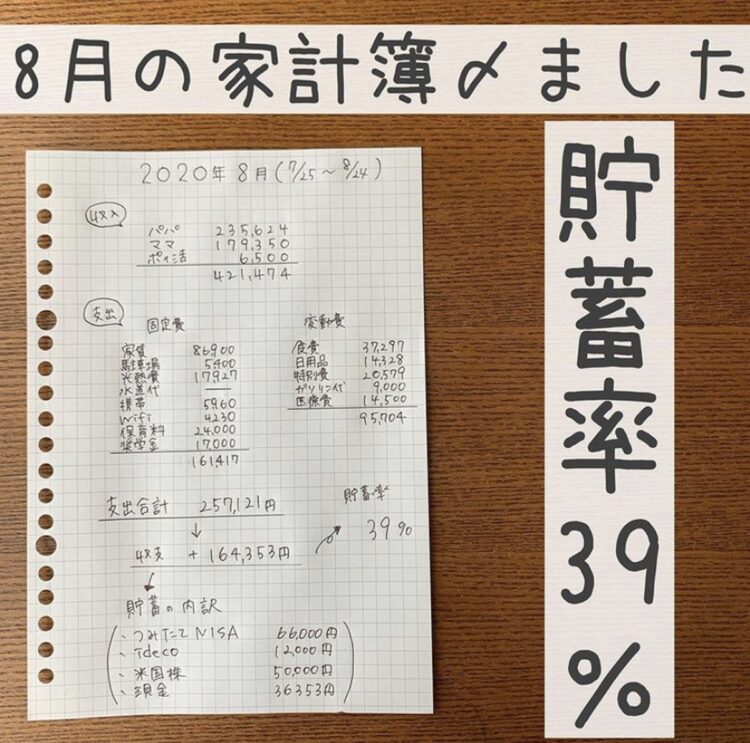 8月の家計簿〆ました
貯蓄率39%
2020年 8月(7/25〜8/24)
収入
パパ 235,624
ママ 179,350
ポイ活 6,500
421,474
支出
固定費
家賃 86900
駐車場 5400
光熱費 17927
水道代 ―
携帯 5960
Wifi 4230
保育料 24,000
奨学金 17,000
161,417
変動費
食費 37,297
日用品 14,328
特別費 20,579
ガソリン代 9,000
医療費 14,500
95,704
支出合計 257,121円
↓
収支 +164,353円
貯蓄率
39%
貯蓄の内訳
・つみたてNISA 66,000円
・ideco 12,000円
・米国株 50,000円
・現金 36353円